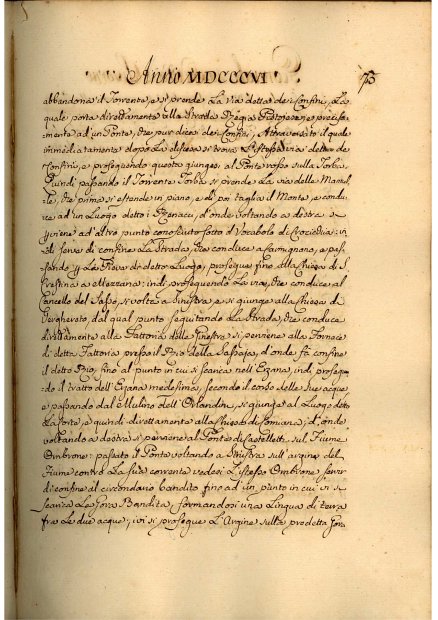 Anno MDCCCVI. 73
abbandona il Torrente, e si prende La via detta dei Confini, La
quale porta direttamente alla Strada Regia Pistojese, e precisa-
mente ad un Ponte, che pur dicesi dei Confini, Attraversato il quale
immediatamente dopo La discesa si trova L'istessa via detta de
Confini, e proseguendo questa giungesi al Ponte rosso sulla Furba.
Quindi passando il Torrente Furba si prende La via delle
che prima si estende in piano, e di poi taglia il Monte, e condu-
ce ad un Luogo detto i d'onde voltando a destra si
perviene ad altro punto conosciuto sotto il Vocabolo di Crocicchia: in-
di serve di confine La Strada, che conduce a Savignano, e pas-
sando p La Pieve di detto Luogo, prosegue fino alla Chiesa di S.
Cristina a Mezzana: indi proseguendo La via, che conduce al
Cancello del Sasso, si volta a Sinistra e si giunge alla Chiesa di
Verghereto, dal qual punto seguitando La Strada, che conduce
direttamente alla Fattoria delle Ginestre si perviene alla Fornace
di detta Fattoria presso il Rio della d'onde fà confine
il detto Rio, fino al punto in cui si scarica nell'Ezana, indi prosegue
do il tratto dell'Ezana medesima, secondo il corso delle sue acque
e passando dal Mulino dell'Orlandini, si giunge al Luogo detto
La Serra, e quindi direttamente alla Chiesa di Comiana; d'onde
voltando a destra si perviene al Ponte di Castelletti sul Fiume
Ombrone: passato il Ponte voltando a Sinistra sull'argine del
Fiume contro La sua corrente vedesi L'istesso Ombrone servir
di confine al circondario bandito fino ad un punto in cui vi si
scarica La fora Bandita formandosi una Lingua di terra
fra Le due acque; ivi si prosegue L'Argine sulla predetta fora